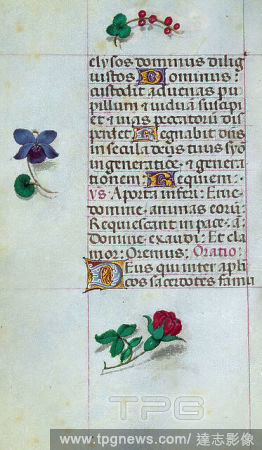 elysos dominus dilig
iustos Dominus
custodit aduenas pu
pillum et uiduam suscipi
et et uias peccatorum dis
perdet Regnabit dns
in secula deus tuus syon
in generatione et genera
tionem: Requiem:
VS: A porta inferi: Erue
domine: animas eorum:
Requiescant in pace: a
Domine exaudi: Et cla
mor: Oremus: Oratio:
Deus qui inter apli
cos sacerdotes famu
TPG
www.tpgnews.com/ 達志影像